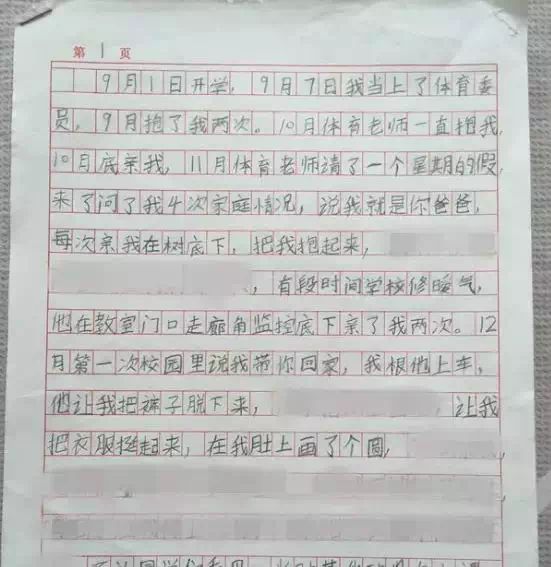 第 1 页
9月1日开学，9月7日我当上了体育委
员，9月抱了我两次。10月体育老师一直抱我，
10月底亲我，11月体育老师请了一个星期的假，
来了问了我4次家庭情况，说我就是你爸爸，
每次亲我在树底下，把我抱起来，
，有段时间学校修暖气，
他在教室门口走廊角监控底下亲了我两次。12
月第一次校园里说我带你回家，我根他上车，
他让我把裤子脱下来，让我
把衣服挺起来，在我肚上画了个圆，